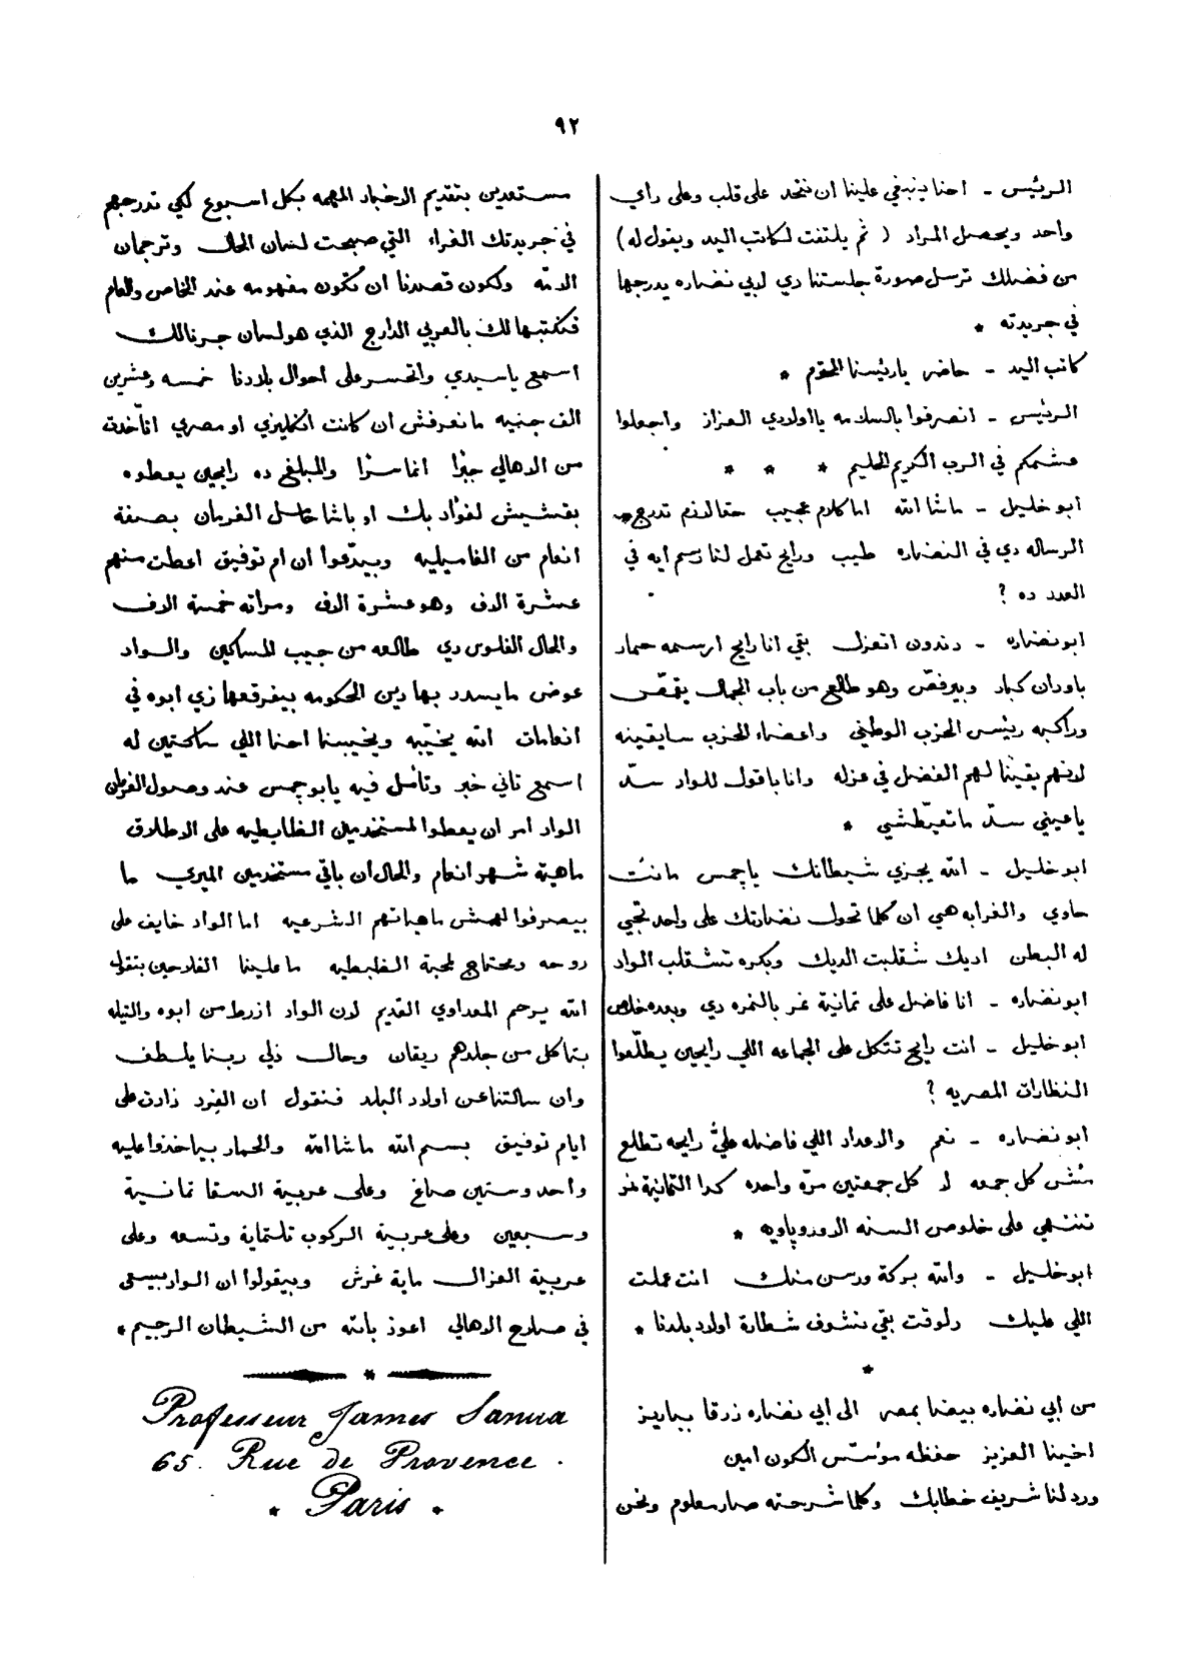 ٩٢
الرئيس - احنا ينبغي علينا ان نتحد على قلب وعلى راي
واحد ويحصل المراد ( ثم يلتفت لكاتب اليد ويقول له )
من فضلك ترسل صورة جلستنا دي لابي نضاره يدرجها
في جريدته *
كاتب اليد - حاضر يا رئيسنا المحترم *
الرئيس - انصرفوا بالسلامه يا اولادي العزاز واجعلوا
عشمكم في الرب الكريم الحليم * * *
ابو خليل - ماشا الله اما كلام عجيب حقا لازم تدرج
الرساله دي في النضاره طيب ورايح تعمل لنا رسم ايه في
العدد ده ؟
ابو نضاره - دندون انعزل بقي انا رايح ارسمه حمار
باودان كبار وبيرفص وهو طالع من باب الجمال يقمص
وراكبه رئيس الحزب الوطني واعضاء الحزب سايقينه
لانهم يقينا لهم الفضل في عزله وانا باقول للواد سد
يا عيني سد ما تعيطشي *
ابو خليل - الله يجزي شيطانك يا چمس ما نت
حاوي والغرابه هي ان كلما تحول نضارتك على واحد تجي
له البطن اديك شقلبت الديك وبكره تشقلب الواد
ابو نضاره - انا فاضل على تمانية نمر بالنمره دي وبعده خلاص
ابو خليل - انت رايح تتكل على الجماعه اللي رايحين يطلعوا
النظارات المصريه ؟
ابو نضاره - نعم والاعداد اللي فاضله علي رايحه تطلع
مش كل جمعه لا كل جمعتين مره واحده كدا التمانية نمر
تنتهي على خلوص السنه الاوروپاويه *
ابو خليل - والله بركة ورسن منك انت عملت
اللي عليك دلوقت بقي نشوف شطارة اولاد بلدنا *
*
من ابي نضاره بيضا بمصر الى ابي نضاره زرقا بباريز
اخينا العزيز حفظه مؤسس الكون امين
ورد لنا شريف خطابك وكلما شرحته صار معلوم ونحن
مستعدين بتقديم الاخبار المهمه بكل اسبوع لكي تدرجهم
في جريدتك الغراء التي صبحت لسان الحال وترجمان
الامه ولكون قصدنا ان تكون مفهومه عند الخاص والعام
فنكتبها لك بالعربي الدارج الذي هو لسان جرنالك
اسمع يا سيدي واتحسر على احوال بلادنا خمسه وعشرين
الف جنيه ما نعرفش ان كانت انكليزي او مصري اتأخدت
من الاهالي جبرا انما سرا والمبلغ ده رايحين يعطوه
بقشيش لفؤاد بك او باشا حامل الفرمان بصفة
انعام من الفاميليه وبيدعوا ان ام توفيق اعطت منهم
عشرة الاف وهو عشرة الاف ومراته خمسة الاف
والحال الفلوس دي طالعه من جيب المساكين والواد
عوض ما يسدد بها دين الحكومه بيفرقعها زي ابوه في
انعامات الله يخيبه ويخيبنا احنا اللي ساكتين له
اسمع تاني خبر وتأمل فيه يا بو چمس عند وصول الفرمان
الواد امر ان يعطوا المستخدمين الظابطيه على الاطلاق
ماهية شهر انعام والحال ان باقي مستخدمين الميري ما
بيصرفوا لهمش ماهياتهم الشرعيه اما الواد خايف على
روحه ومحتاج لمحبة الظبطيه ما علينا الفلاحين بتقول
الله يرحم المعداوي القديم لان الواد ازرط من ابوه والتيله
بتاكل من جلدهم ريقان وحال ذلي ربنا يلطف
وان سالتنا عن اولاد البلد فنقول ان الفرد زادت على
ايام توفيق بسم الله ما شا الله والحمار بياخذوا عليه
واحد وستين صاغ وعلى عربية السقا تمانية
وسبعين وعلى عربية الركوب تلتماية وتسعه وعلى
عربية العزال ماية غرش وبيقولوا ان الواد بيسعى
في صالح الاهالي اعوذ بالله من الشيطان الرجيم *
*
Professeur James Sanua
65. Rue de Provence.
* Paris *